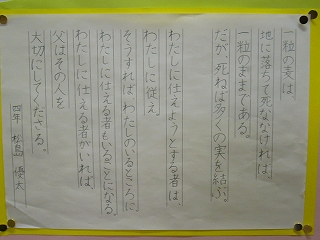 一粒の麦は、
地に落ちて死ななければ、
一粒のままである。
だが、死ねば多くの実を結ぶ。
わたしに仕えようとする者は、
わたしに従え。
そうすれば、わたしのいるところに、
わたしに仕える者もいることになる。
わたしに仕える者がいれば、
父はその人を
大切にしてくださる。
四年 松島 優太